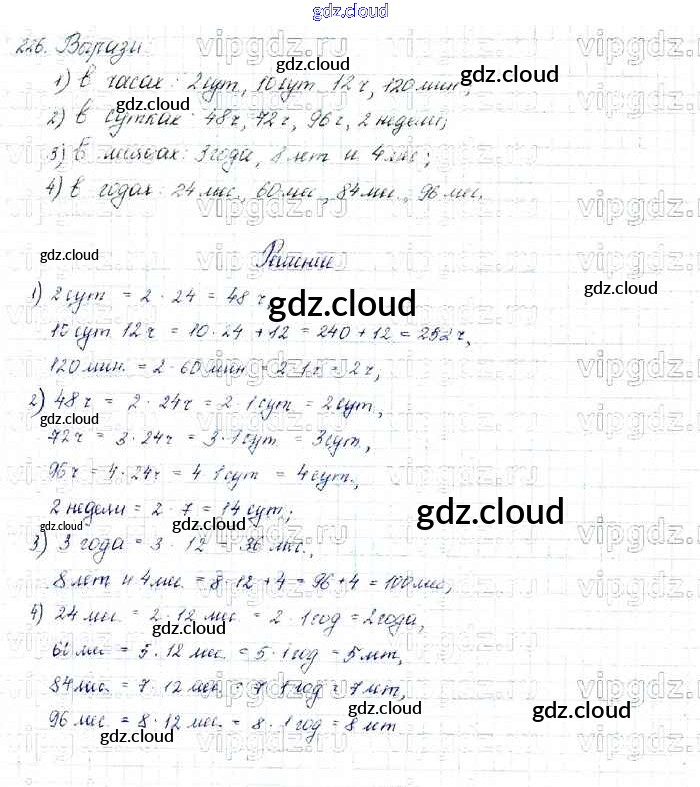 gdz.cloud
226. Вырази:
1) в часах: 2 сут, 10 сут 12 ч, 120 мин;
2) в сутках: 48 ч, 72 ч, 96 ч, 2 недели;
3) в месяцах: 3 года, 8 лет и 4 мес;
4) в годах: 24 мес., 60 мес, 84 мес., 96 мес.
Решение
1) 2 сут = 2 · 24 = 48 ч,
10 сут 12 ч = 10 · 24 + 12 = 240 + 12 = 252 ч,
120 мин. = 2 · 60 мин. = 2 · 1 ч = 2 ч,
2) 48 ч = 2 · 24 ч = 2 · 1 сут = 2 сут.,
72 ч = 3 · 24 ч = 3 · 1 сут = 3 сут.,
96 ч = 4 · 24 ч = 4 · 1 сут = 4 сут.,
2 недели = 2 · 7 = 14 сут;
3) 3 года = 3 · 12 = 36 мес.,
8 лет и 4 мес. = 8 · 12 + 4 = 96 + 4 = 100 мес,
4) 24 мес. = 2 · 12 мес = 2 · 1 год = 2 года,
60 мес = 5 · 12 мес = 5 · 1 год = 5 лет,
84 мес. = 7 · 12 мес. = 7 · 1 год = 7 лет,
96 мес. = 8 · 12 мес. = 8 · 1 год = 8 лет
gdz.cloud
vipgdz.ru